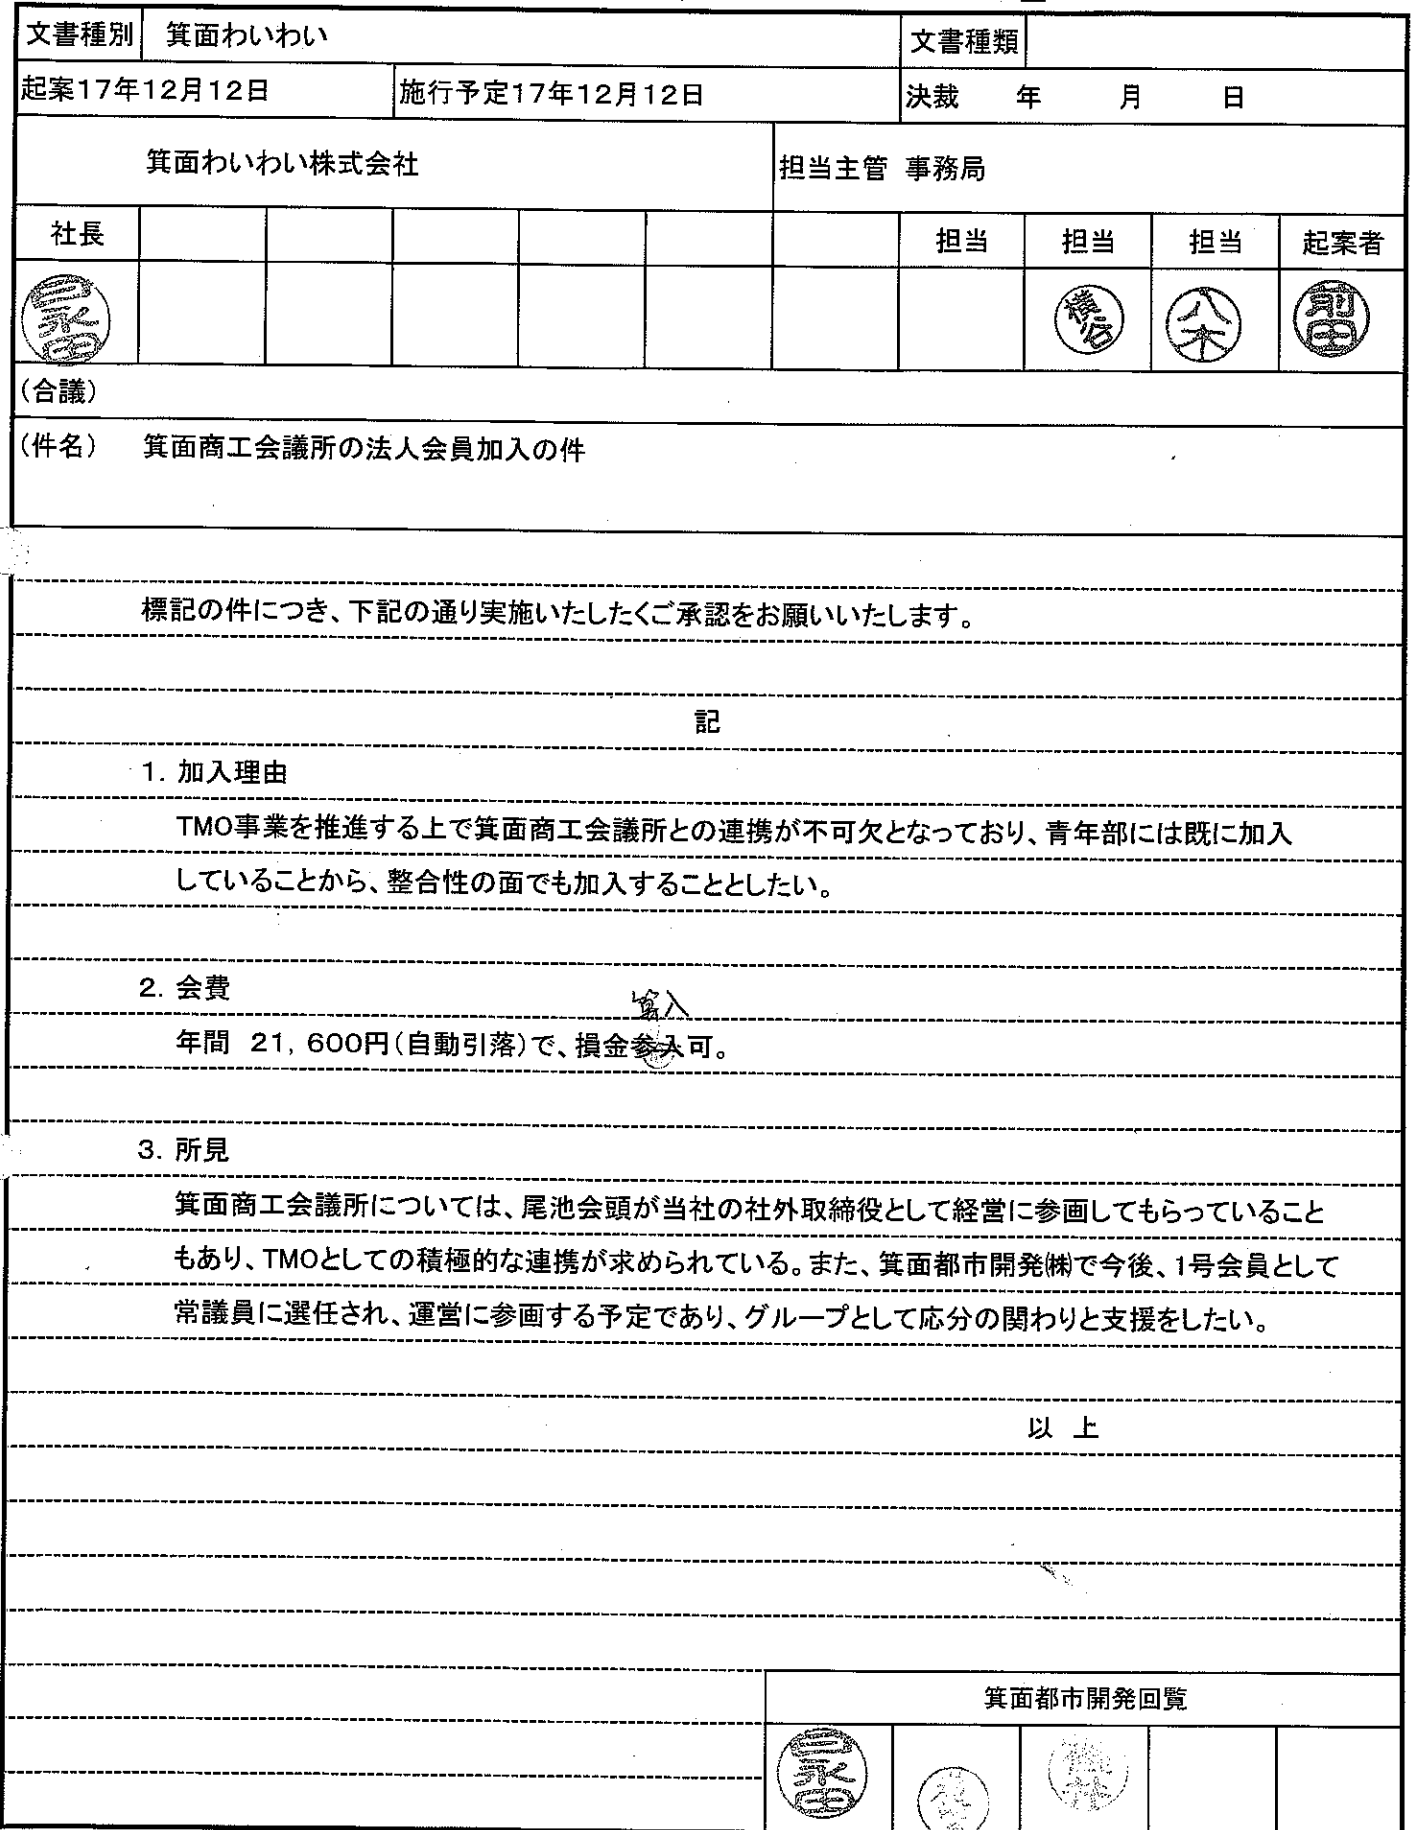 文書種別 箕面わいわい 文書種類
起案17年12月12日 施行予定17年12月12日 決裁 年 月 日
箕面わいわい株式会社 担当主管 事務局
社長 担当 担当 担当 起案者
永田 横谷 八木 前田
(合議)
(件名) 箕面商工会議所の法人会員加入の件
標記の件につき、下記の通り実施いたしたくご承認をお願いいたします。
記
1. 加入理由
TMO事業を推進する上で箕面商工会議所との連携が不可欠となっており、青年部には既に加入
していることから、整合性の面でも加入することとしたい。
2. 会費
算入
年間 21,600円(自動引落)で、損金参入可。
3. 所見
箕面商工会議所については、尾池会頭が当社の社外取締役として経営に参画してもらっていること
もあり、TMOとしての積極的な連携が求められている。また、箕面都市開発㈱で今後、1号会員として
常議員に選任され、運営に参画する予定であり、グループとして応分の関わりと支援をしたい。
以 上
箕面都市開発回覧
永田